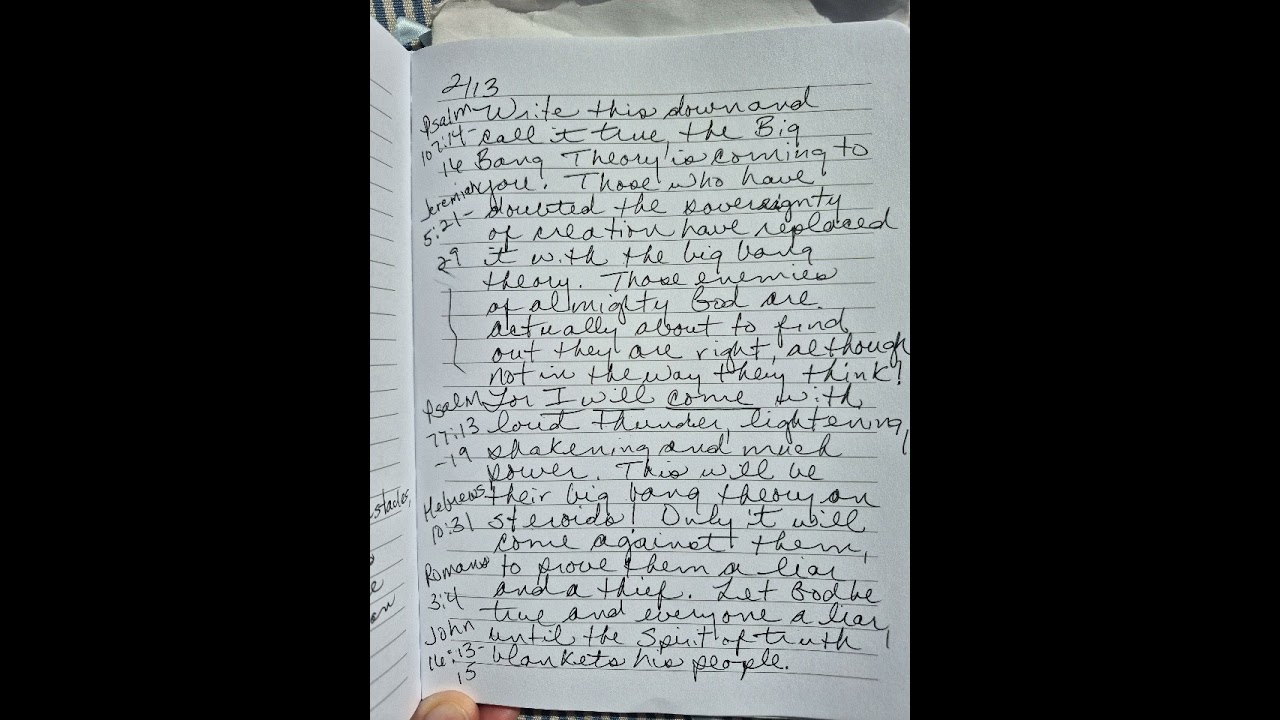 2/13
Psalm Write this down and
107:14- call it true, the Big
16 Bang Theory is coming to
Jeremiah you. Those who have
5:21- doubted the sovereignty
29 of creation have replaced
it with the big bang
theory. Those enemies
of almighty God are
actually about to find
out they are right, although
not in the way they think!
Psalm For I will come with
77:13 loud thunder, lightening,
-19 shakening and much
power. This will be
Hebrews their big bang theory on
10:31 steroids! Only it will
come against them,
Romans to prove them a liar
3:4 and a thief. Let God be
true and everyone a liar,
John until the Spirit of truth
16:13- blankets his people.
15
stacles,